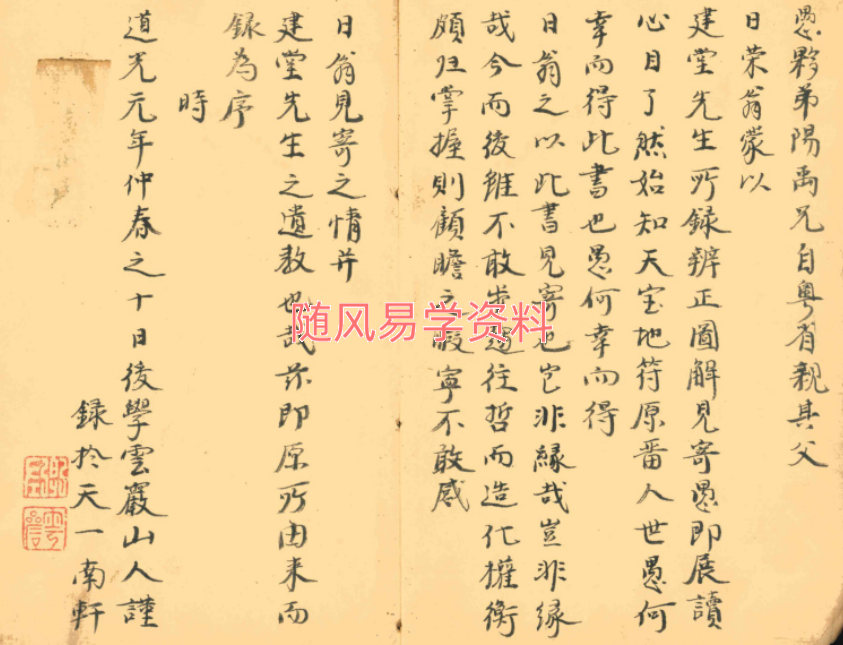 愚夥弟陽禹兄自粵省親其父
日荣翁蒙以
建堂先生所録辨正圖解見寄愚即展讀
心目了然始知天宝地符原番人世愚何
幸而得此書也愚何幸而得
日翁之以此書見寄也岂非緣哉豈非緣
哉今而後雖不敢步趨往哲而造化權衡
頗归掌握則顧瞻之暇寧不敢感
日翁見寄之情并
建堂先生之遺教也哉茲即原所由来而
録為序
時
道光元年仲春之十日後學雲巖山人謹
録於天一南軒
随风易学资料